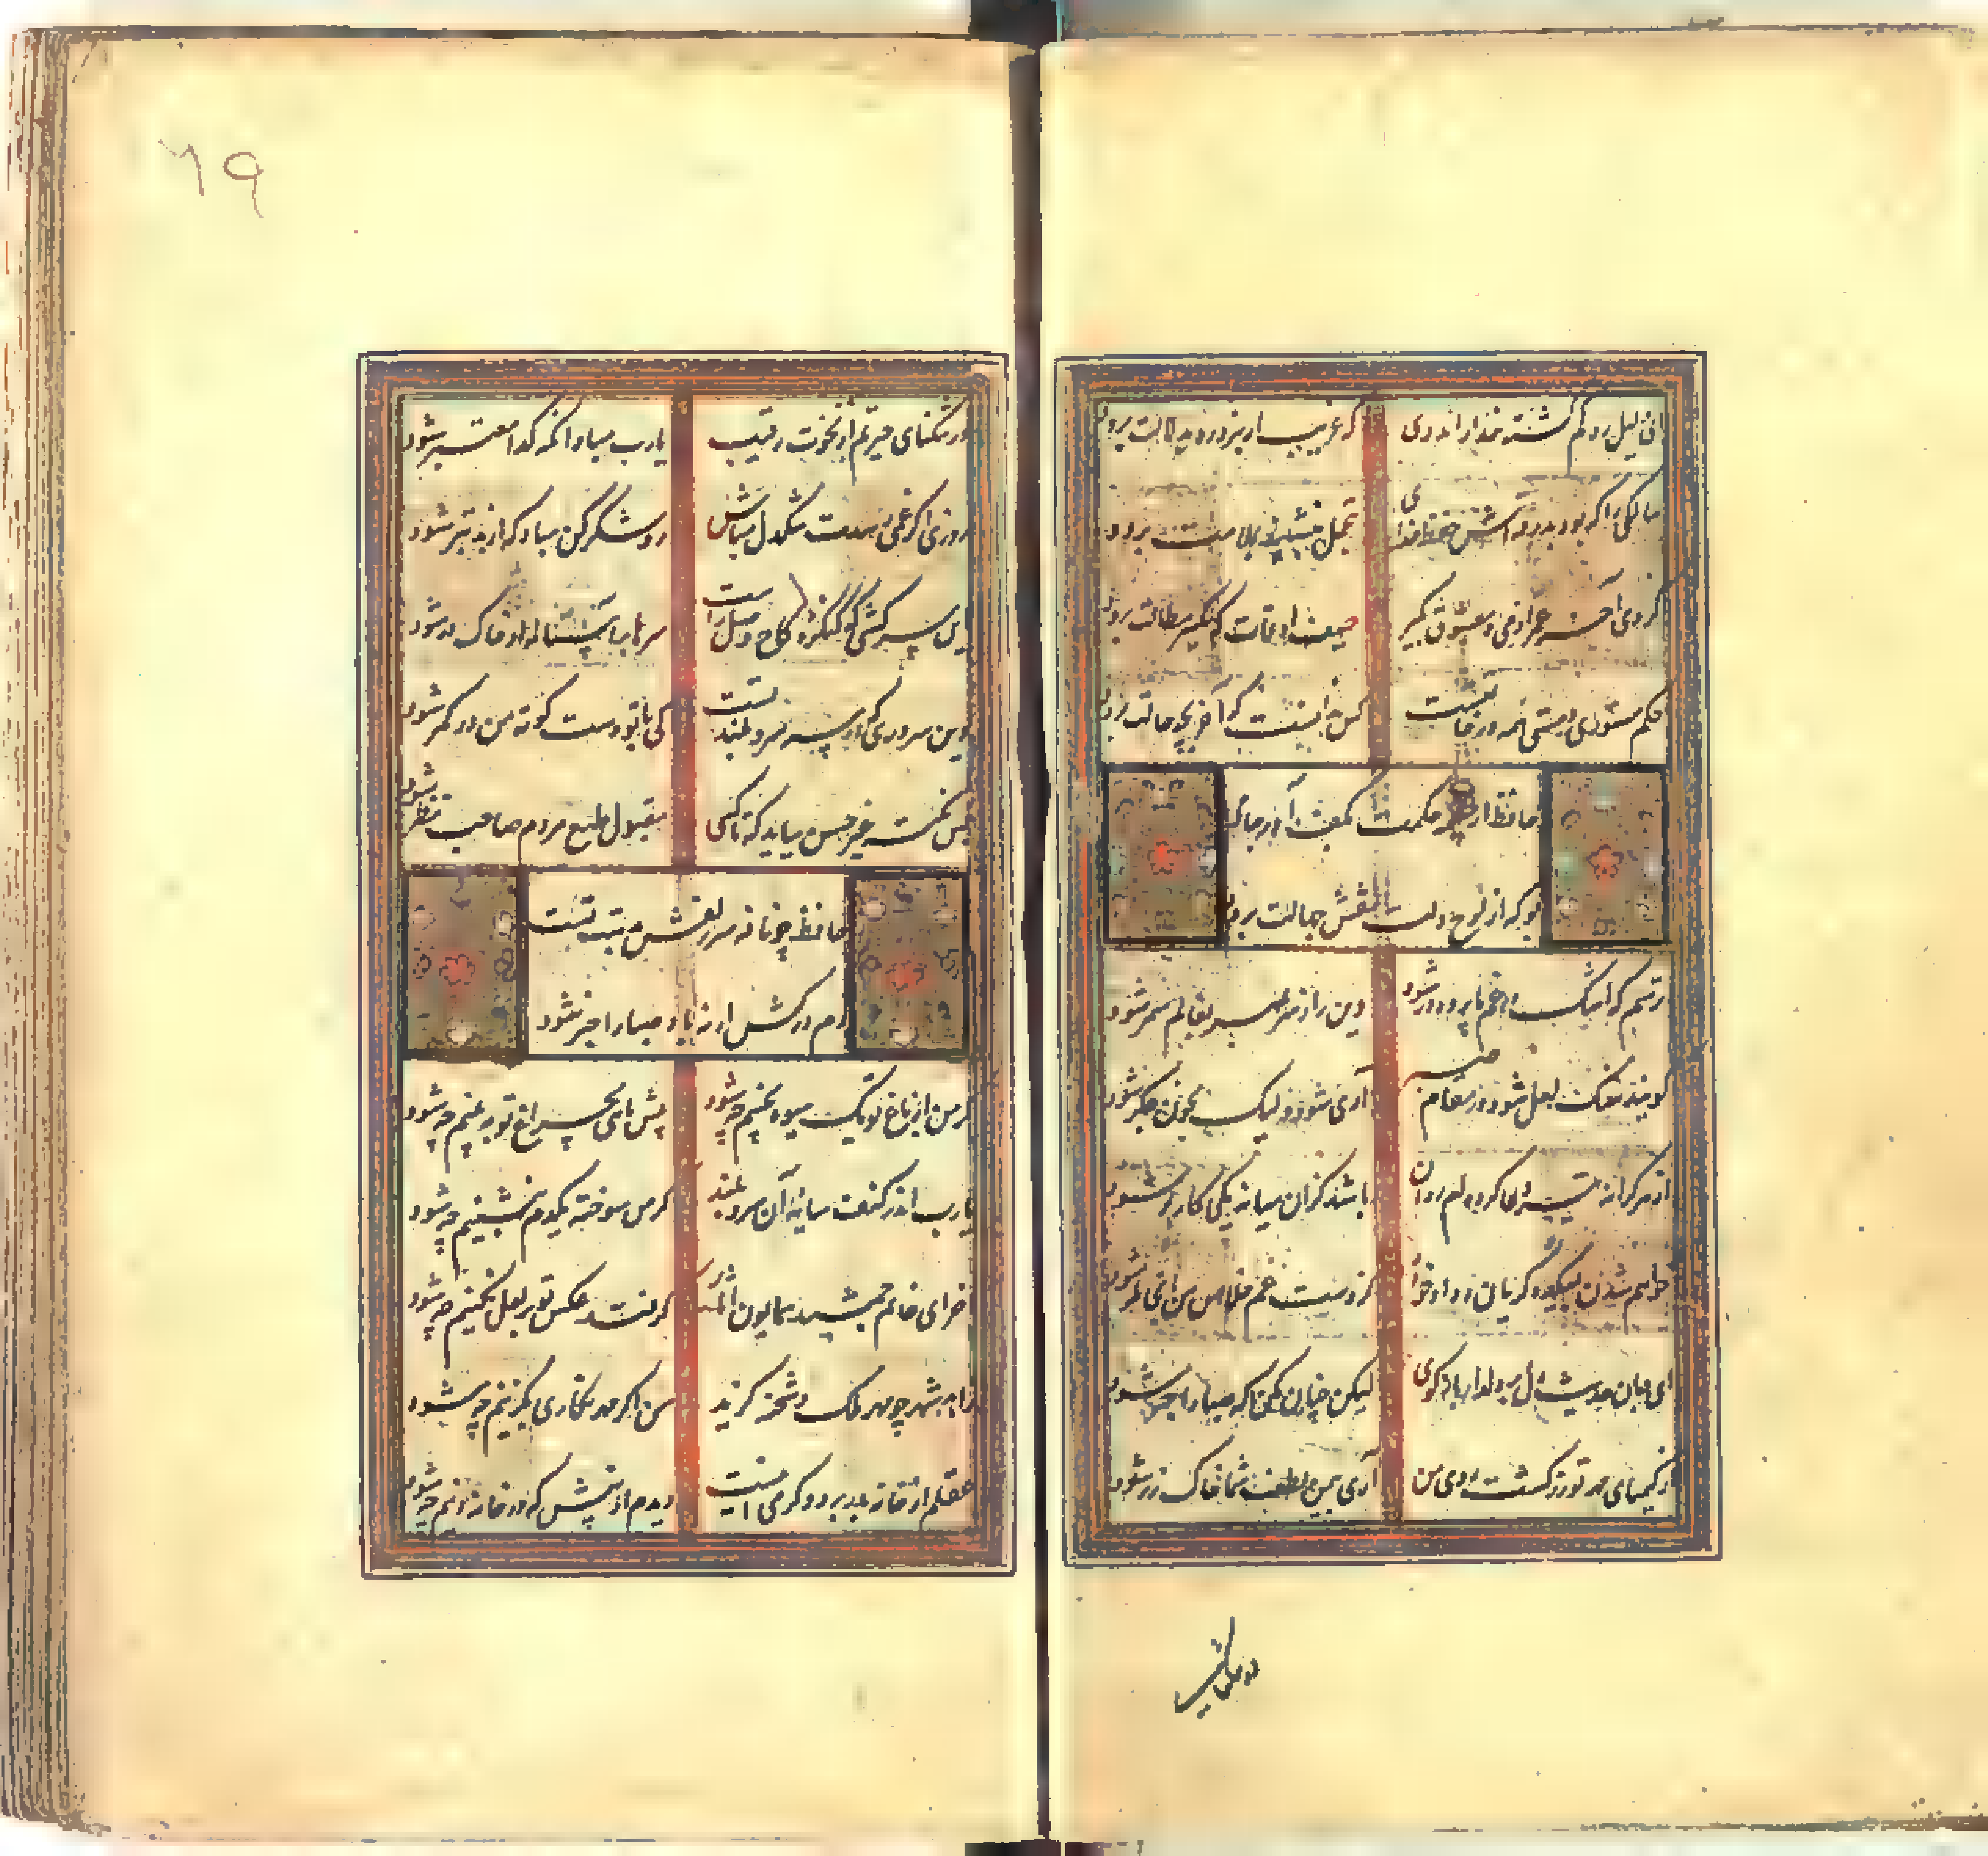 ای دلیل ره گم گشته خدا را مددی
که غریب ار نبرد ره بدلالت برود
سالکی را که بود بدرقه اش حفظ خدای
بتجمل بنشیند بجلالت برود
کروی آخر عمر از می و معشوق بگیر
حیف اوقات که یکسر ببطالت برود
حکم مستوری و مستی همه در خاتمتست
کس ندانست که آخر بچه حالت برود
حافظ از چشمه حکمت بکف آور جامی
بو که از لوح دلت نقش جهالت برود
ترسم که اشک در غم ما پرده در شود
وین راز سر بمهر بعالم سمر شود
گویند سنگ لعل شود در مقام صبر
آری شود ولیک بخون جگر شود
از هر کرانه تیر دعا کرده ام روان
باشد کزان میانه یکی کارگر شود
خواهم شدن بمیکده گریان و دادخواه
کز دست غم خلاص من آنجا مگر شود
ای جان حدیث دل بر دلدار بازگوی
لیکن چنان مگو که صبا را خبر شود
از کیمیای مهر تو زر گشت روی من
آری بیمن لطف شما خاک زر شود
در تنگنای
۶۹
در تنگنای حیرتم از نخوت رقیب
یارب مباد آنکه گدا معتبر شود
روزی اگر غمی رسدت تنگدل مباش
رو شکر کن مباد که از بد بتر شود
این سرکشی که کنگره کاخ وصل راست
سرها بر آستانه او خاک در شود
وین سروری که در سر سرو بلند تست
کی با تو دست کوته من در کمر شود
بس نکته غیر حسن بباید که تا کسی
مقبول طبع مردم صاحب نظر شود
حافظ چو نافه سر زلفش بدست تست
دم درکش ار نه باد صبا را خبر شود
گر من از باغ تو یک میوه بچینم چه شود
پیش پای بچراغ تو ببینم چه شود
یارب اندر کنف سایه آن سرو بلند
گر من سوخته یکدم بنشینم چه شود
آخر ای خاتم جمشید همایون آثار
گر فتد عکس تو بر لعل نگینم چه شود
زاهد شهر چو مهر ملک و شحنه گزید
من اگر مهر نگاری بگزینم چه شود
عقلم از خانه بدر برد و گر می اینست
دیدم از پیش که در خانه دینم چه شود